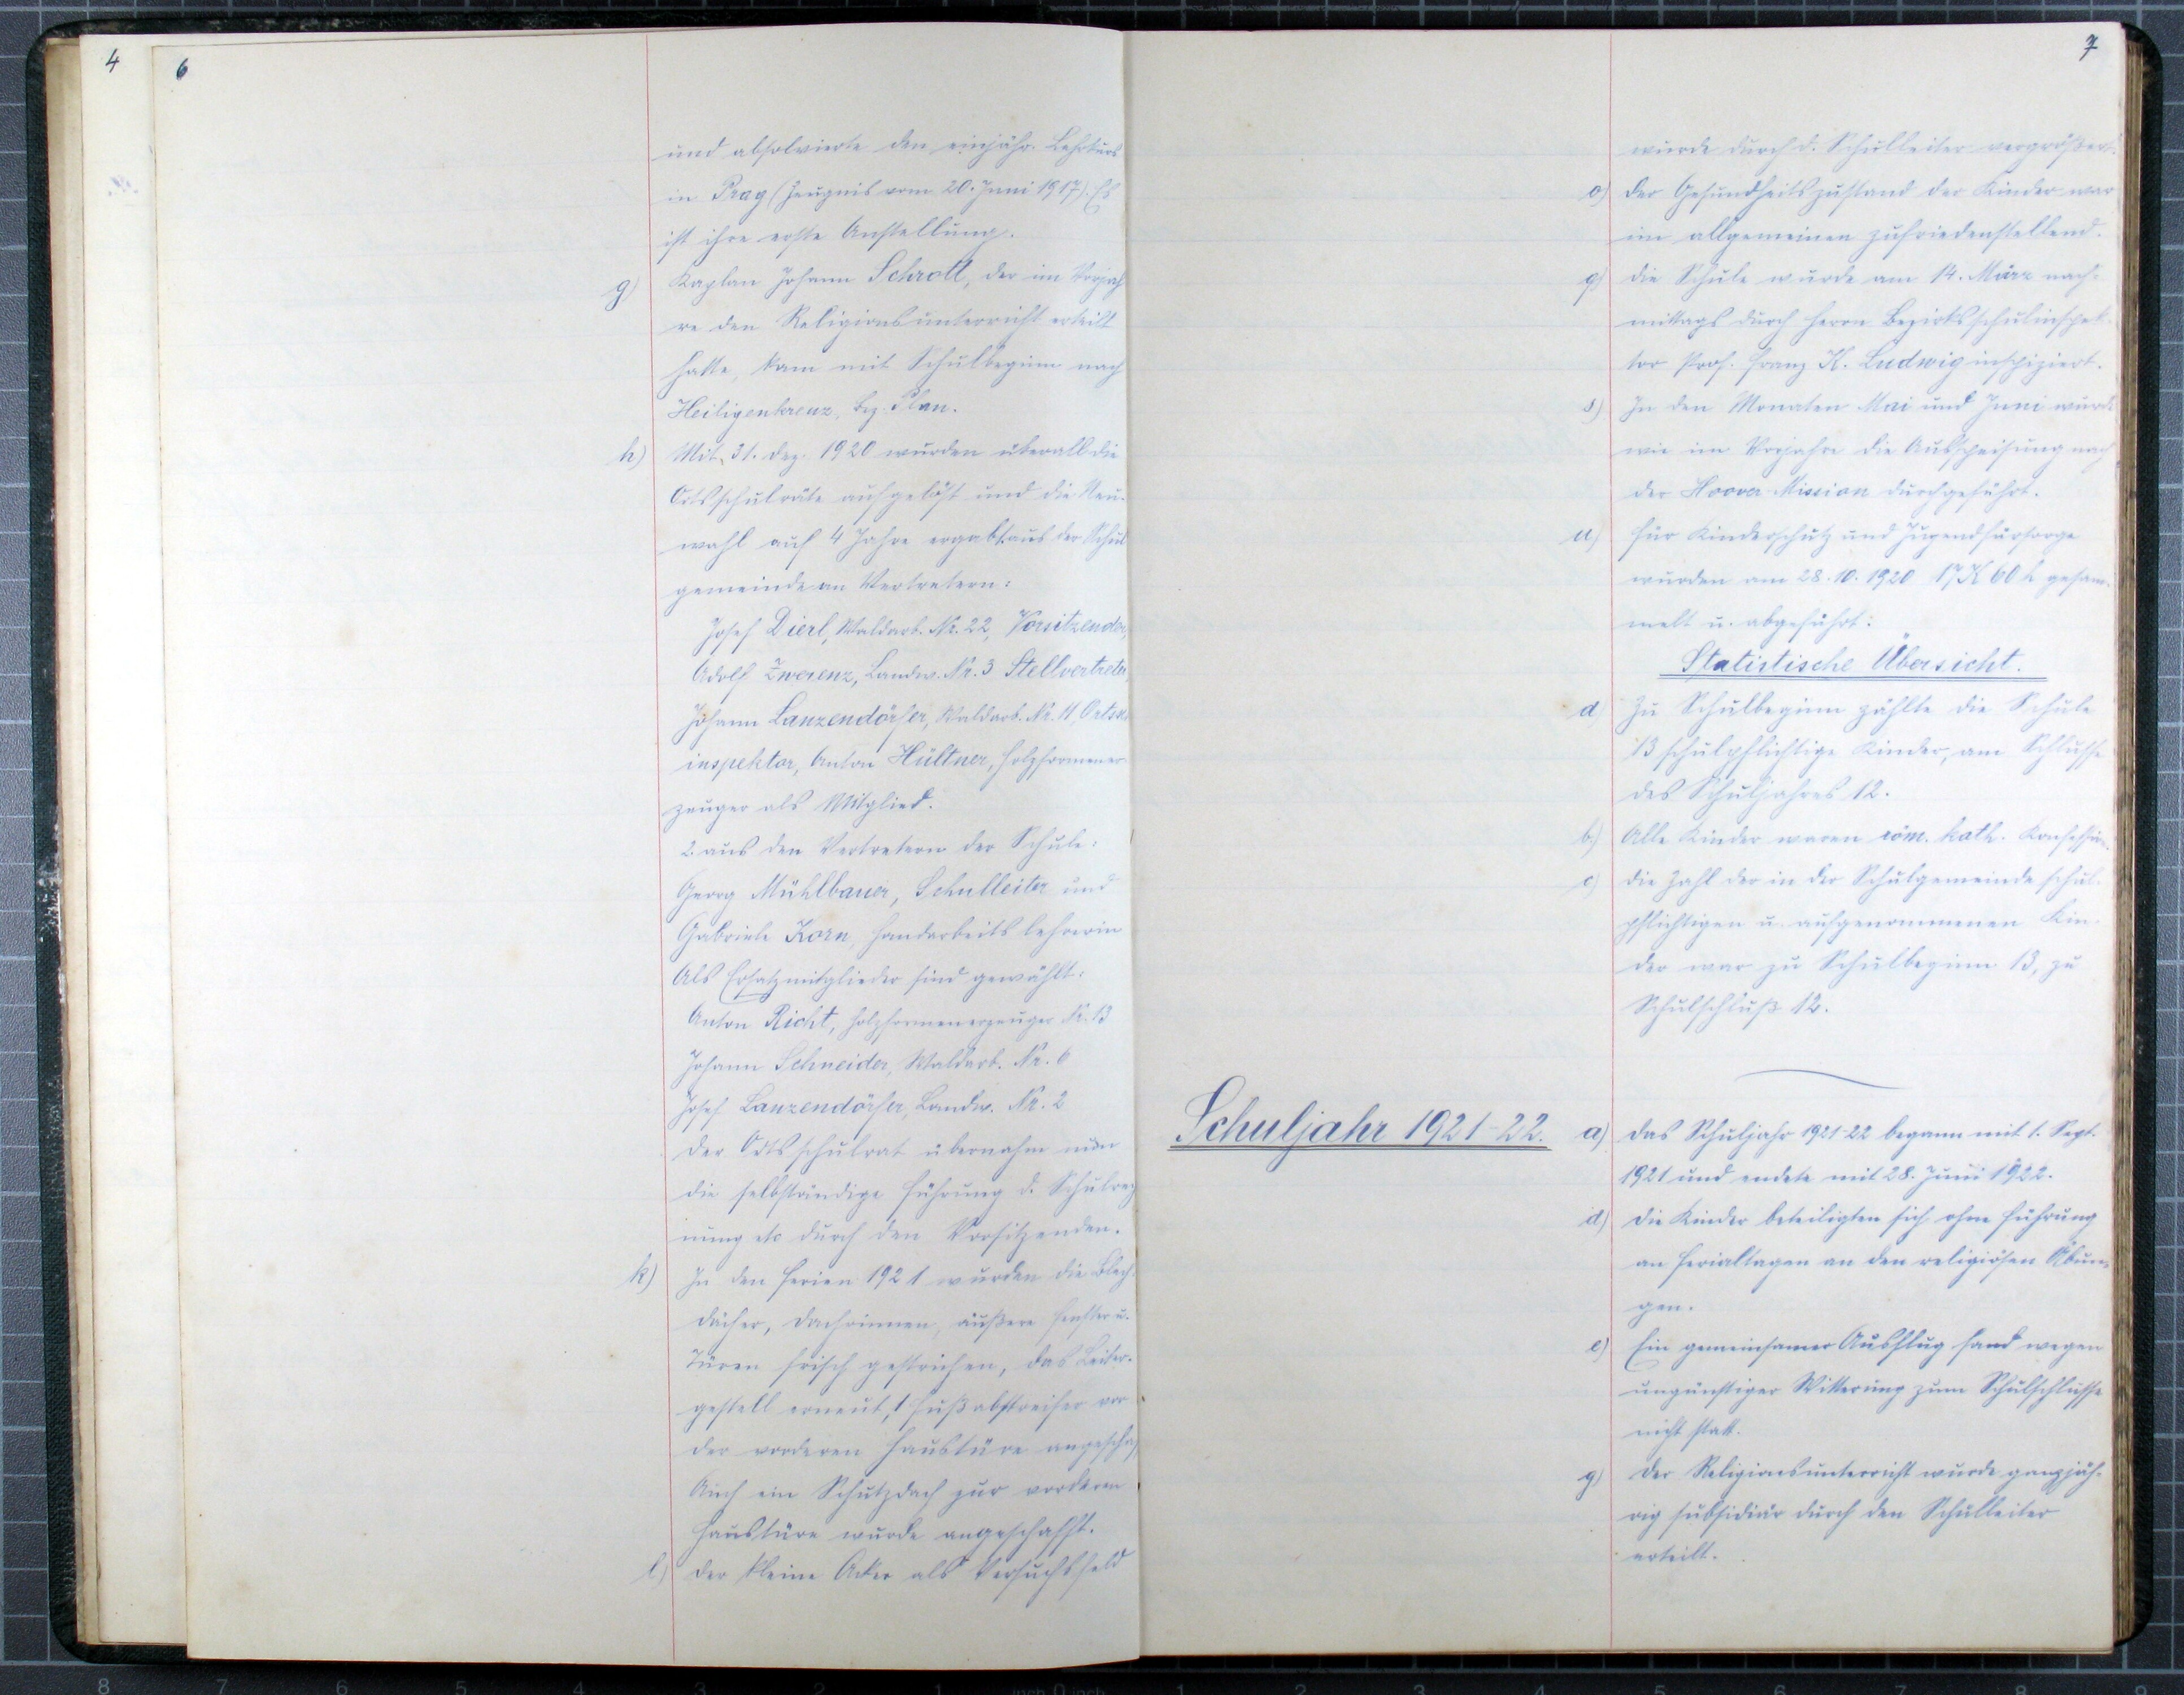 4
6
und absolvierte den einjähr. Lehrkurs
in Prag (Zeugnis vom 20. Juni 1917). Es
ist ihre erste Anstellung.
g) Kaplan Johann Schrott, der im Vorjah
re den Religionsunterricht erteilt
hatte, kam mit Schulbeginn nach
Heiligenkreuz, bez. Plan.
h) Mit 31. Dez. 1920 wurden überall die
Ortsschulräte aufgelöst und die Neu-
wahl auf 4 Jahre ergab 1. aus der Schul
gemeinde an Vertretern:
Josef Dierl, Waldarb. Nr. 22, Vorsitzender,
Adolf Zwerenz, Landw. Nr. 3 Stellvertreter
Johann Lanzendörfer, Waldarb. Nr. 11, Ortssch
inspektor, Anton Hüttner, Holzformener
zeuger als Mitglied.
2. aus den Vertretern der Schule:
Georg Mühlbauer, Schulleiter und
Gabriele Korn, Handarbeitslehrerin
Als Ersatzmitglieder sind gewählt:
Anton Richt, Holzformenerzeuger Nr. 13
Johann Schneider, Waldarb. Nr. 6
Josef Lanzendörfer, Landw. Nr. 2
Der Ortsschulrat übernahm nun
die selbständige Führung d. Schulrech
nung etc durch den Vorsitzenden.
k) In den Ferien 1921 wurden die Blech-
dächer, Dachrinnen, äußere Fenster u.
Türen frisch gestrichen, das Leiter-
gestell erneut, 1 Fußabstreifer vor
der vorderen Haustüre angeschaf
Auch ein Schutzdach zur vorderen
Haustüre wurde angeschafft.
l) Der kleine Acker als Versuchsfeld
7
wurde durch d. Schulleiter vergrößert.
o) Der Gesundheitszustand der Kinder war
im allgemeinen zufriedenstellend.
q) Die Schule wurde am 14. März nach-
mittags durch Herrn Bezirksschulinspek-
tor Prof. Franz K. Ludwig inspiziert.
s) In den Monaten Mai und Juni wurde
wie im Vorjahre die Ausspeisung nach
der Hoover-Mission durchgeführt.
u) Für Kinderschutz und Jugendfürsorge
wurden am 28.10.1920 17 K 60 h gesam-
melt u. abgeführt:
Statistische Übersicht.
a) Zu Schulbeginn zählte die Schule
13 schulpflichtige Kinder, am Schlusse
des Schuljahres 12.
b.) Alle Kinder waren röm. kath. Konfession.
c) Die Zahl der in der Schulgemeinde schul-
pflichtigen u. aufgenommenen Kin-
der war zu Schulbeginn 13, zu
Schulschluß 12.
Schuljahr 1921-22. a) Das Schuljahr 1921-22 begann mit 1. Sept.
1921 und endete mit 28. Juni 1922.
d) Die Kinder beteiligten sich ohne Führung
an Ferialtagen an den religiösen Übun-
gen.
e) Ein gemeinsamer Ausflug fand wegen
ungünstiger Witterung zum Schulschlusse
nicht statt.
g) Der Religionsunterricht wurde ganzjäh-
rig subsidiär durch den Schulleiter
erteilt.
8 7 6 5 4 3 2 1 inch 0 inch 1 2 3 4 5 6 7 8 9